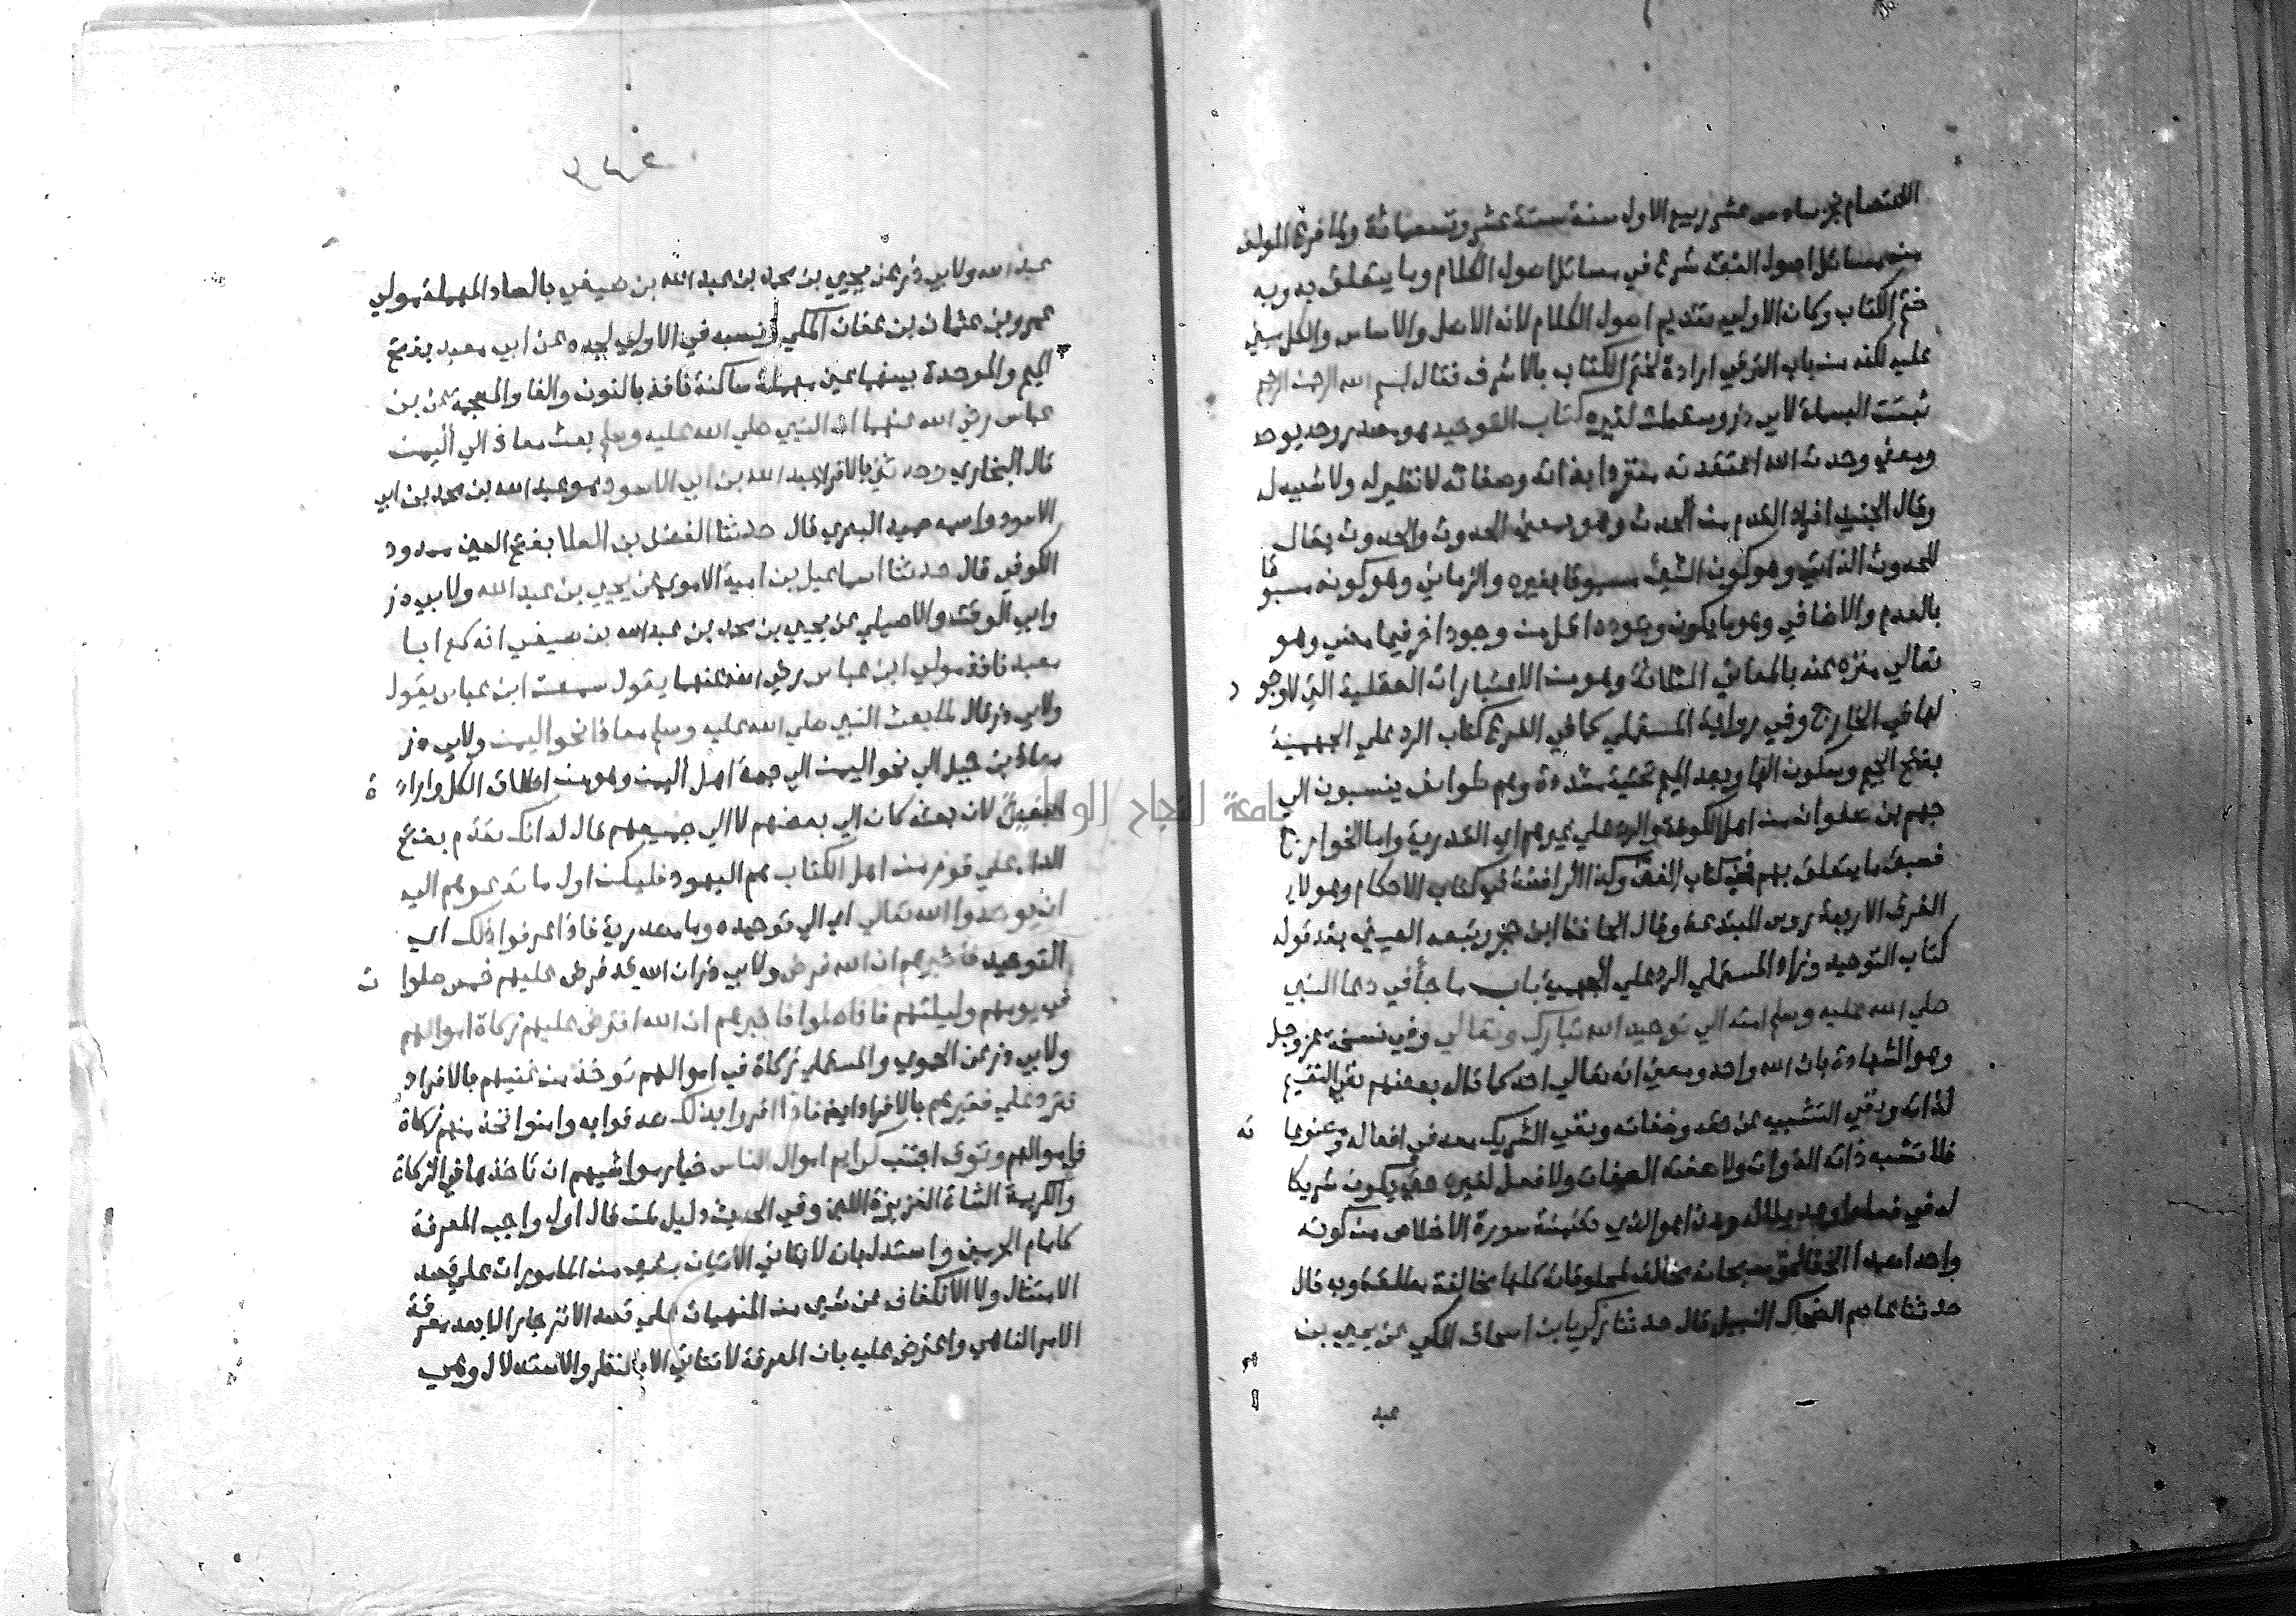 الاعتصام في سادس عشر ربيع الاول سنة ستة عشر وتسعمائة ولما فرغ المولف
من مسائل اصول الفقه شرع في مسائل اصول الكلام وما يتعلق به وبه
ختم الكتاب وكان الاولي تقديم اصول الكلام لانه الاصل والاساس والكل مبني
عليه لكنه من باب الترقي ارادة لختم الكتاب بالاشرف فقال بسم الله الرحمن الرحيم
ثبتت البسملة لابي ذر وسقطت لغيره كتاب التوحيد هو مصدر وحد يوحد
ومعني وحدت الله اعتقدته منفردا بذاته وصفاته لا نظير له ولا شبيه له
وقال الجنيد افراد القدم من الحدث وهو بمعني الحدوث والحدوث يقال
للحدوث الذاتي وهو كون الشي مسبوقا بغيره والزماني وهو كونه مسبوقا
بالعدم والاضافي وهو ما يكون وجوده اقل من وجود اخر فيما مضي وهو
تعالي منزه عنه بالمعاني الثلاثة وهو من الاعتبارات العقلية التي لا وجود
لها في الخارج وفي رواية المستملي كما في الفرع كتاب الرد علي الجهمية
بفتح الجيم وسكون الها وبعد الميم تحتية مشددة وهم طوايف ينسبون الي
جهم بن صفوان من اهل الكوفة والرد علي غيرهم اي القدرية واما الخوارج
فسبق ما يتعلق بهم في كتاب الفتن وكذا الرافضة في كتاب الاحكام وهولاء
الفرق الاربعة روس المبتدعة وقال الحافظ ابن حجر وتبعه العيني بعد قوله
كتاب التوحيد وزاد المستملي الرد علي الجهمية باب ما جأ في دعا النبي
صلي الله عليه وسلم امته الي توحيد الله تبارك وتعالي وفي نسخة عز وجل
وهو الشهادة بان الله واحد ومعني انه تعالي احد كما قاله بعضهم نفي التقسيم
لذاته ونفي التشبيه عن حقه وصفاته ونفي الشريك معه في افعاله ومصنوعاته
فلا تشبه ذاته الذوات ولا صفته الصفات ولا فعل لغيره حتي يكون شريكا
له في فعله وهذا هو الذي تضمنته سورة الاخلاص من كونه
واحدا صمدا فالحق سبحانه مخالف لمخلوقاته كلها مخالفة مطلقة وبه قال
حدثنا عاصم الضحاك النبيل قال حدثنا زكريا بن اسحاق المكي عن يحيي بن
عبد
عبد الله ولابي ذر عن يحيي بن محمد بن عبد الله بن صيفي بالصاد المهملة مولي
عمرو بن عثمان بن عفان المكي ونسبه في الاولي لجده عن ابي معبد بفتح
الميم والموحدة بينهما عين مهملة ساكنة نافذ بالنون والفا والمعجمة عن بن
عباس رضي الله عنهما ان النبي صلي الله عليه وسلم بعث معاذ الي اليمن
قال البخاري وحدثني بالافراد عبد الله بن ابي الاسود هو عبد الله بن محمد بن ابي
الاسود واسمه حميد البصري قال حدثنا الفضل بن العلا بفتح العين ممدود
الكوفي قال حدثنا اسماعيل بن امية الاموي عن يحيي بن عبد الله ولابي ذر
وابي الوقت والاصيلي عن يحيي بن محمد بن عبد الله بن صيفي انه سمع ابا
معبد نافذ مولي ابن عباس رضي الله عنهما يقول سمعت ابن عباس يقول
ولابي ذر قال لما بعث النبي صلي الله عليه وسلم معاذا نحو اليمن ولابي ذر
معاذ بن جبل الي نحو اليمن الي جهة اهل اليمن وهو من اطلاق الكل وارادة
البعض لان بعثه كان الي بعضهم لا الي جميعهم قال له انك تقدم بفتح
الدال علي قوم من اهل الكتاب هم اليهود فليكن اول ما تدعوهم اليه
ان يوحدوا الله تعالي اي الي توحيده وما مصدرية فاذا عرفوا ذلك اي
التوحيد فاخبرهم ان الله فرض ولابي ذر ان الله قد فرض عليهم خمس صلوات
في يومهم وليلتهم فاذا صلوا فاخبرهم ان الله افترض عليهم زكاة اموالهم
ولابي ذر عن الحموي والمستملي زكاة في اموالهم توخذ من غنيهم بالافراد
فترد علي فقيرهم بالافراد ايضا فاذا اقروا بذلك صدقوا به وامنوا فخذ منهم زكاة
اموالهم وتوق اجتنب كرايم اموال الناس خيار مواشيهم ان تاخذها في الزكاة
والكريمة الشاة الغزيرة اللبن وفي الحديث دليل لمن قال اول واجب المعرفة
كامام الحرمين واستدل بان لا يتاتي الاتيان بشي من المامورات علي قصد
الامتثال ولا الانكفاف عن شي من المنهيات علي قصد الانزجار الا بعد معرفة
الامر الناهي واعترض عليه بان المعرفة لا تتاتي الا بالنظر والاستدلال وهي